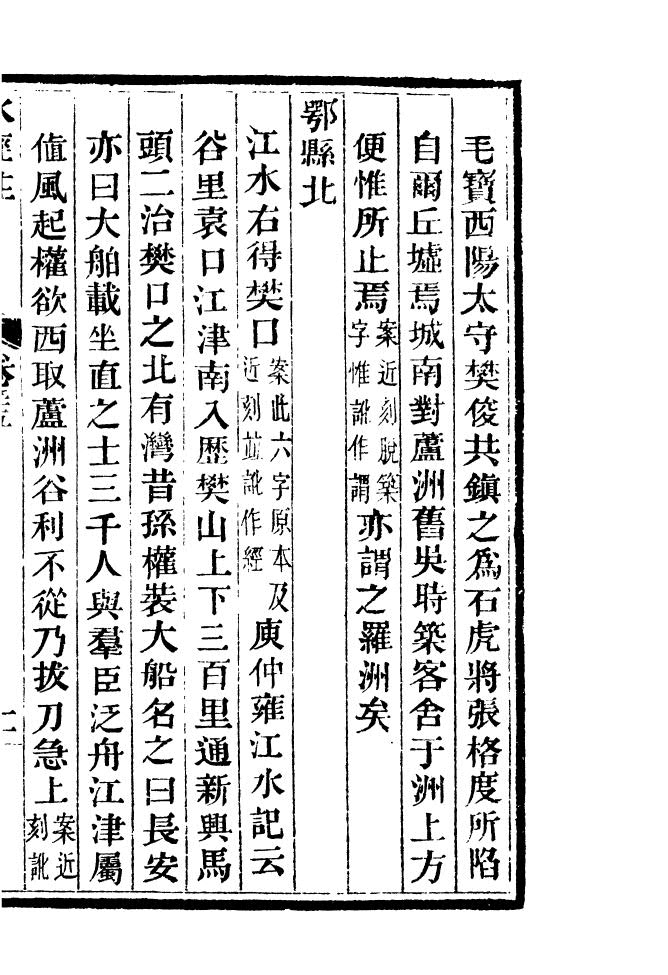 毛寶西陽太守樊俊共鎮之爲石虎將張格度所陷
自爾丘墟焉城南對蘆洲舊吳時築客舍于洲上方
便惟所止焉案近刻脫築字惟訛作謂亦謂之羅洲矣
鄂縣北
江水右得樊口案此六字原本及近刻並訛作經庾仲雍江水記云
谷里袁口江津南入歷樊山上下三百里通新興馬
頭二治樊口之北有灣昔孫權裝大船名之曰長安
亦曰大舶載坐直之士三千人與羣臣泛舟江津屬
值風起權欲西取蘆洲谷利不從乃拔刀急上案近刻訛
水經注 卷三十五 十一